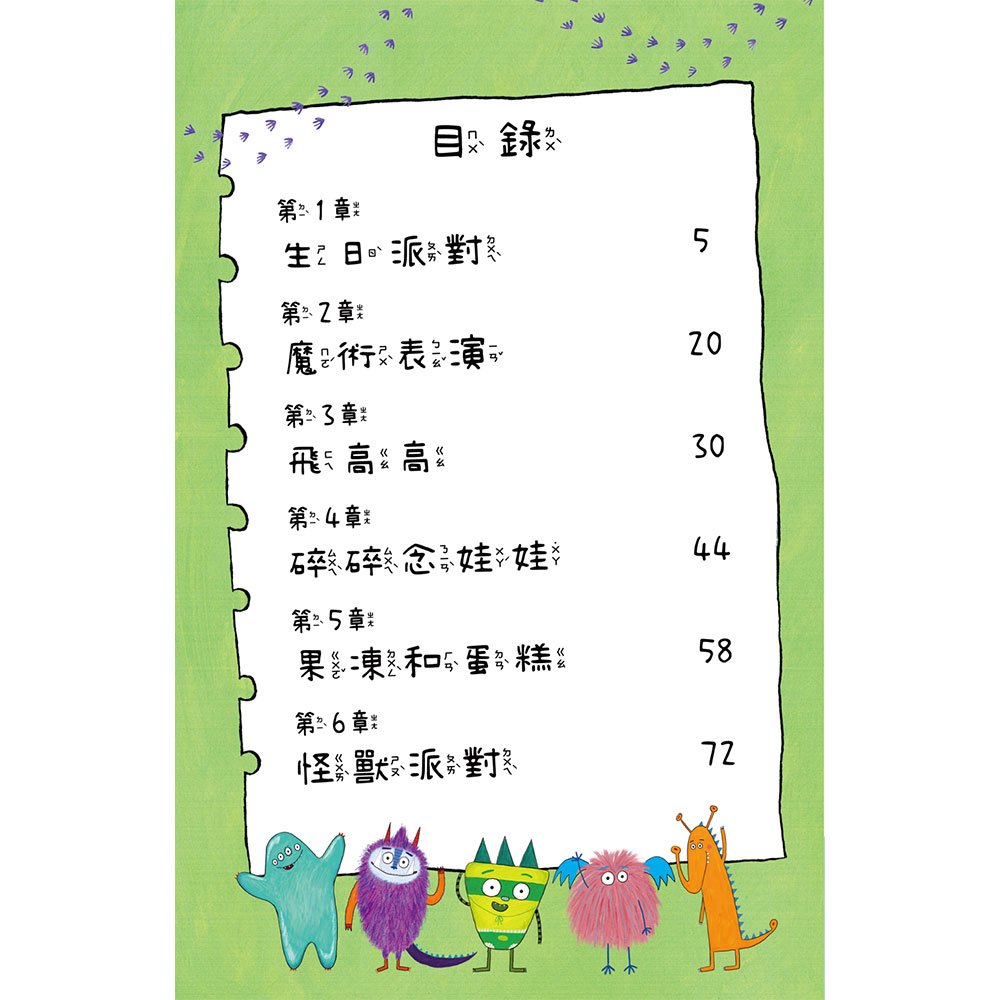 目錄
第1章
生日派對 5
第2章
魔術表演 20
第3章
飛高高 30
第4章
碎碎念娃娃 44
第5章
果凍和蛋糕 58
第6章
怪獸派對 72